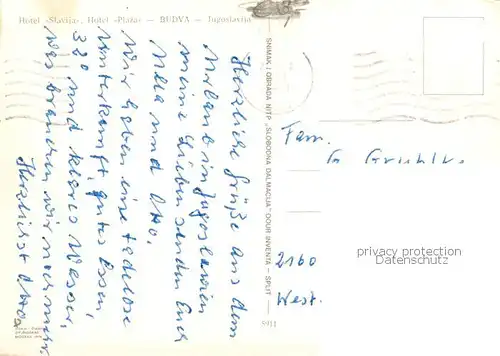 Hotel »Slavija«, Hotel »Plaža« — BUDVA — Jugoslavija
Herzliche Grüße aus dem
Urlaub in Jugoslawien
meine Lieben senden Euch
und Otto.
Wir haben eine tadellose
Unterkunft, gutes Essen,
32° und klares Wasser,
was brauchen wir mehr.
Herzlichst Otto
SNIMAK I OBRADA NITP „SLOBODNA DALMACIJA" OOUR INVENTA — SPLIT
5911
Fam.
2160
West.
privacy protection
Datenschutz